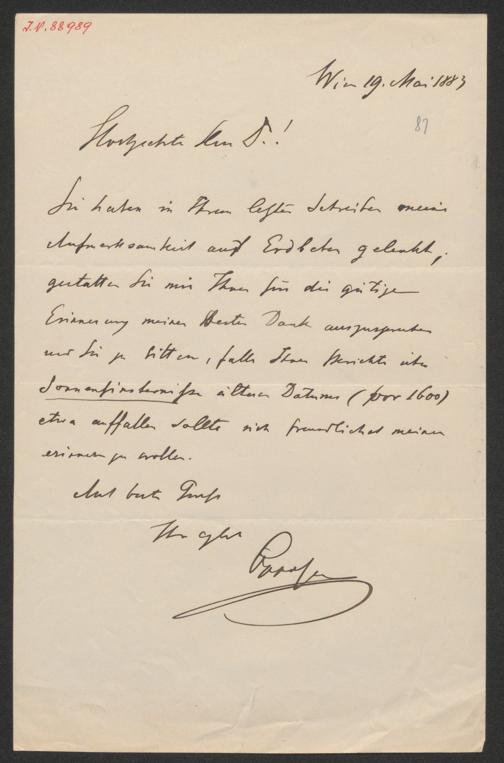 J.N. 88989
Wien 19. Mai 1883
87
Hochgeehrter Herr Dr.!
Sie haben in Ihrem letzten Schreiben meine
Aufmerksamkeit auf Erdbeben gelenkt,
gestatten Sie mir Ihnen für die gütige
Erinnerung meinen besten Dank auszusprechen
und Sie zu bitten, falls Ihnen Berichte über
Sonnenfinsternisse älteren Datums (vor 1600)
etwa auffallen sollte sich freundlichst meiner
erinnern zu wollen.
Mit besten Gruß
Ihr erg